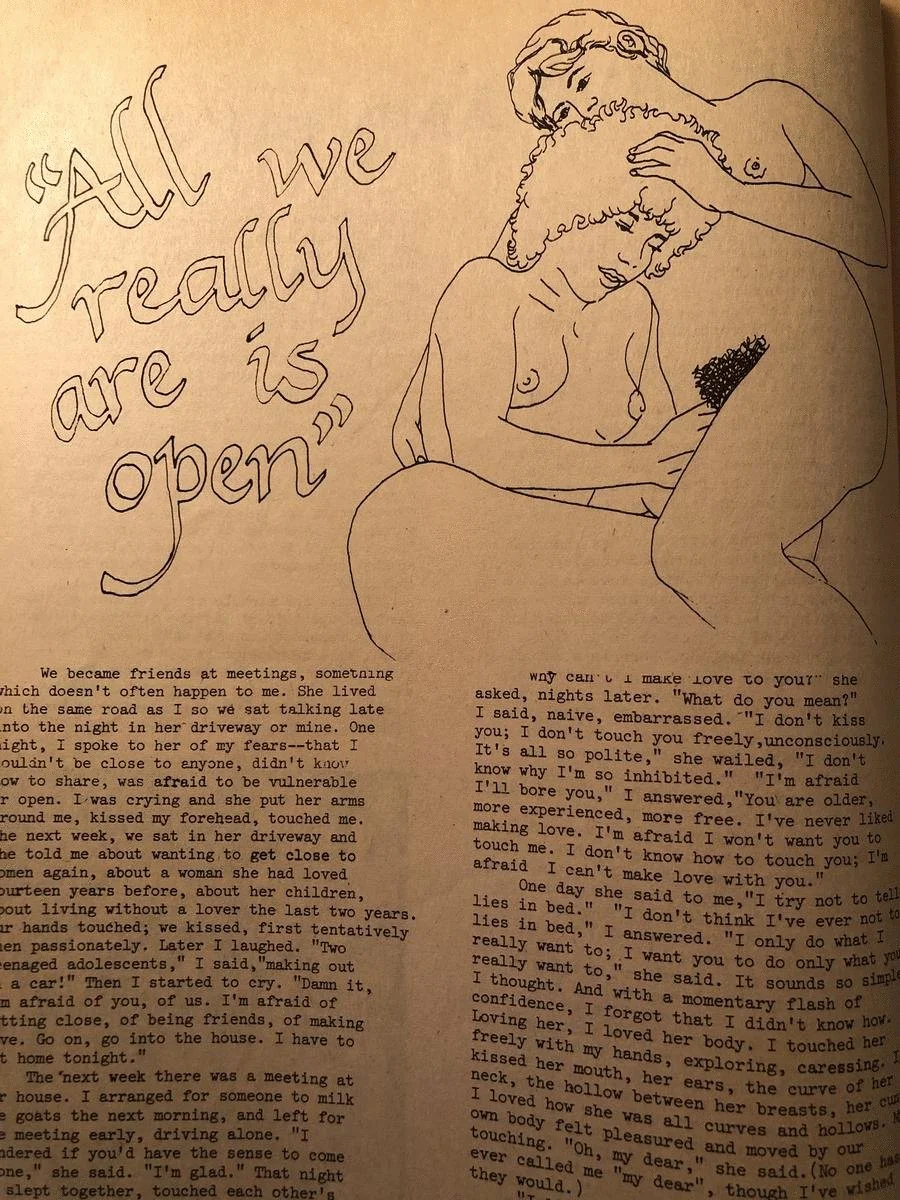 "All we
really
are is
open"
We became friends at meetings, something
which doesn't often happen to me. She lived
on the same road as I so we sat talking late
into the night in her driveway or mine. One
night, I spoke to her of my fears--that I
couldn't be close to anyone, didn't know
how to share, was afraid to be vulnerable
or open. I was crying and she put her arms
around me, kissed my forehead, touched me.
The next week, we sat in her driveway and
she told me about wanting to get close to
women again, about a woman she had loved
fourteen years before, about her children,
about living without a lover the last two years.
Our hands touched; we kissed, first tentatively
then passionately. Later I laughed. "Two
teenaged adolescents," I said,"making out
a car!" Then I started to cry. "Damn it,
I'm afraid of you, of us. I'm afraid of
getting close, of being friends, of making
love. Go on, go into the house. I have to
at home tonight."
The next week there was a meeting at
her house. I arranged for someone to milk
the goats the next morning, and left for
the meeting early, driving alone. "I
wondered if you'd have the sense to come
alone," she said. "I'm glad." That night
slept together, touched each other's
why can't I make love to you?" she
asked, nights later. "What do you mean?"
I said, naive, embarrassed. "I don't kiss
you; I don't touch you freely,unconsciously.
It's all so polite," she wailed, "I don't
know why I'm so inhibited." "I'm afraid
I'll bore you," I answered,"You are older,
more experienced, more free. I've never liked
making love. I'm afraid I won't want you to
touch me. I don't know how to touch you; I'm
afraid I can't make love with you."
One day she said to me,"I try not to tell
lies in bed." "I don't think I've ever not to
lies in bed," I answered. "I only do what I
really want to; I want you to do only what you
really want to," she said. It sounds so simple
I thought. And with a momentary flash of
confidence, I forgot that I didn't know how.
Loving her, I loved her body. I touched her
freely with my hands, exploring, caressing. I
kissed her mouth, her ears, the curve of her
neck, the hollow between her breasts, her
I loved how she was all curves and hollows.
own body felt pleasured and moved by our
touching. "Oh, my dear," she said.(No one has
ever called me "my dear", though I've wished
they would.)